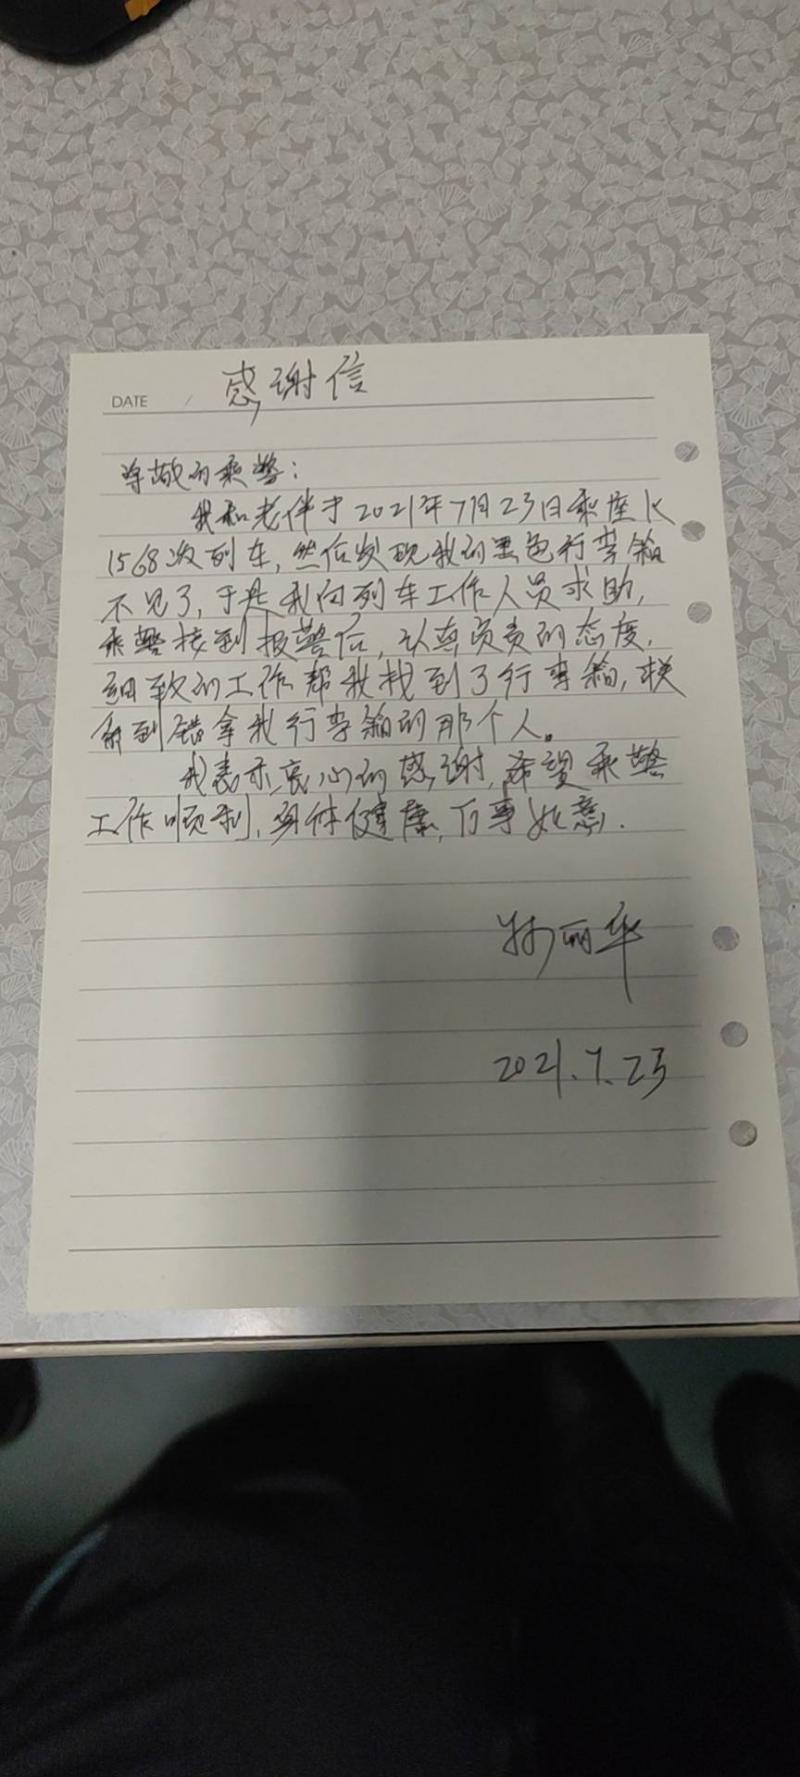 感谢信
DATE /
尊敬的乘警：
我和老伴于2021年7月23日乘座K
1568次列车，然后发现我的黑色行李箱
不见了，于是我向列车工作人员求助，
乘警接到报警后，认真负责的态度，
细致的工作帮我找到了行李箱，联
系到错拿我行李箱的那个人。
我表示衷心的感谢，希望乘警
工作顺利，身体健康，万事如意．
丽华
2021.7.23